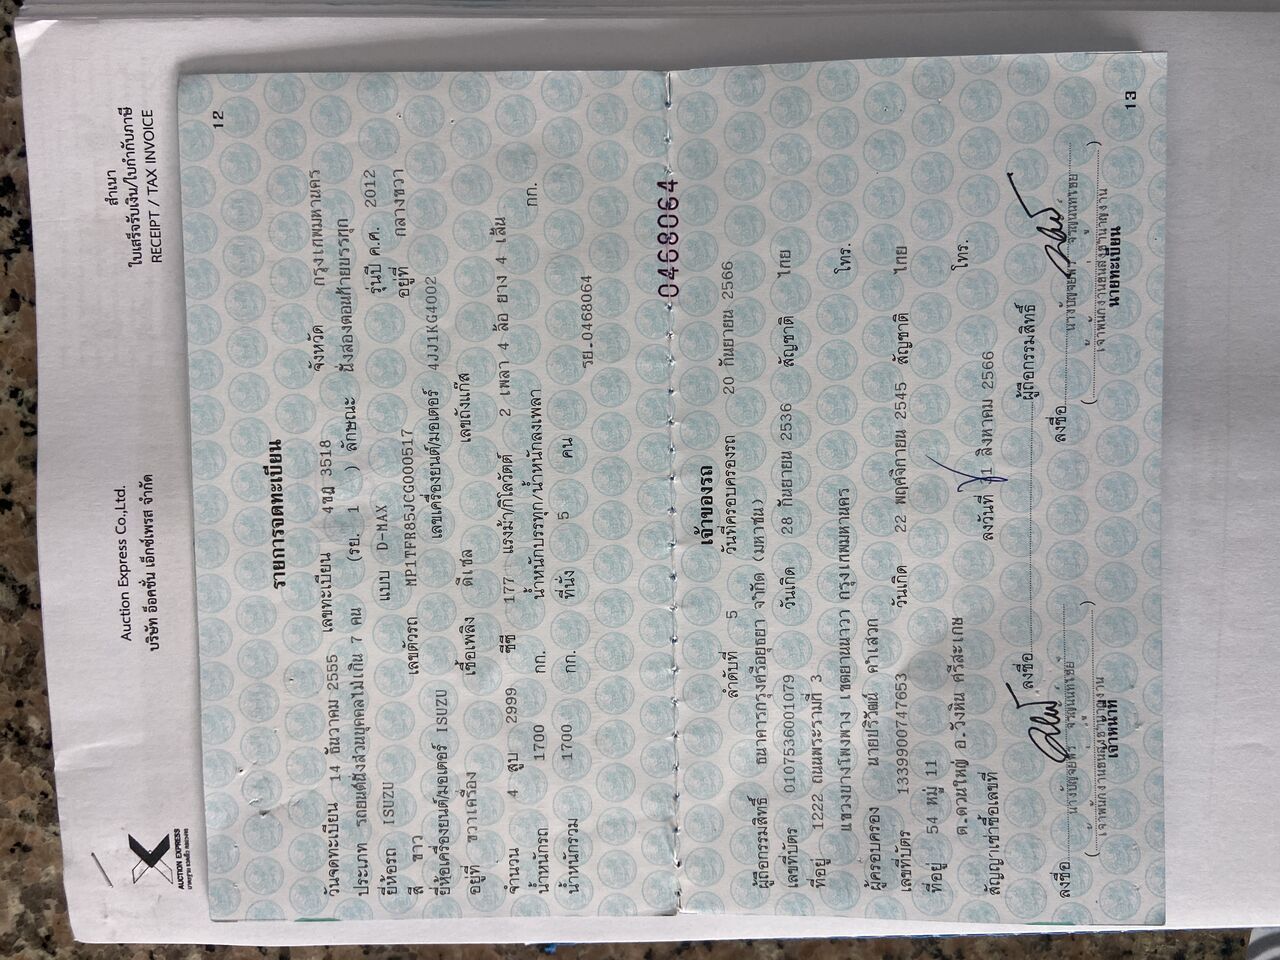 AUCTION EXPRESS
Auction Express Co.,Ltd.
บริษัท อ๊อคชั่น เอ็กซ์เพรส จำกัด
สำเนา
ใบเสร็จรับเงิน/ใบกำกับภาษี
RECEIPT / TAX INVOICE
12
รายการจดทะเบียน
วันจดทะเบียน 14 ธันวาคม 2555 เลขทะเบียน 4ขฎ 3518 จังหวัด กรุงเทพมหานคร
ประเภท รถยนต์นั่งส่วนบุคคลไม่เกิน 7 คน (รย. 1 ) ลักษณะ นั่งสองตอนท้ายบรรทุก
ยี่ห้อรถ ISUZU แบบ D-MAX รุ่นปี ค.ศ. 2012
สี ขาว เลขตัวรถ MP1TFR85JCG000517 อยู่ที่ กลางขวา
ยี่ห้อเครื่องยนต์/มอเตอร์ ISUZU เลขเครื่องยนต์/มอเตอร์ 4JJ1KG4002
อยู่ที่ ขวาเครื่อง เชื้อเพลิง ดีเซล เลขถังแก๊ส
จำนวน 4 สูบ 2999 ซีซี 177 แรงม้า/กิโลวัตต์ 2 เพลา 4 ล้อ ยาง 4 เส้น
น้ำหนักรถ 1700 กก. น้ำหนักบรรทุก/น้ำหนักลงเพลา กก.
น้ำหนักรวม 1700 กก. ที่นั่ง 5 คน
รย.0468064
0468064
เจ้าของรถ
ลำดับที่ 5 วันที่ครอบครองรถ 20 กันยายน 2566
ผู้ถือกรรมสิทธิ์ ธนาคารกรุงศรีอยุธยา จำกัด (มหาชน)
เลขที่บัตร 0107536001079 วันเกิด 28 กันยายน 2536 สัญชาติ ไทย
ที่อยู่ 1222 ถนนพระรามที่ 3
แขวงบางโพงพาง เขตยานนาวา กรุงเทพมหานคร โทร.
ผู้ครอบครอง นายปริวัฒน์ คำเสวก
เลขที่บัตร 1339900747653 วันเกิด 22 พฤศจิกายน 2545 สัญชาติ ไทย
ที่อยู่ 54 หมู่ 11
ต.ดวนใหญ่ อ.วังหิน ศรีสะเกษ โทร.
สัญญาเช่าซื้อเลขที่ ลงวันที่ 31 สิงหาคม 2566
ลงชื่อ ผู้ถือกรรมสิทธิ์
ลงชื่อ ลงชื่อ
(เจ้าพนักงานขนส่งชำนาญงาน) (เจ้าพนักงานขนส่งชำนาญงาน)
เจ้าหน้าที่ นายทะเบียน
13